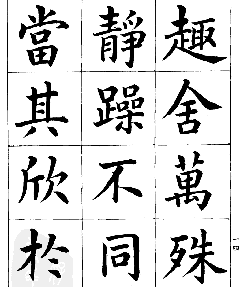 趣舍萬殊
靜躁不同
當其欣於